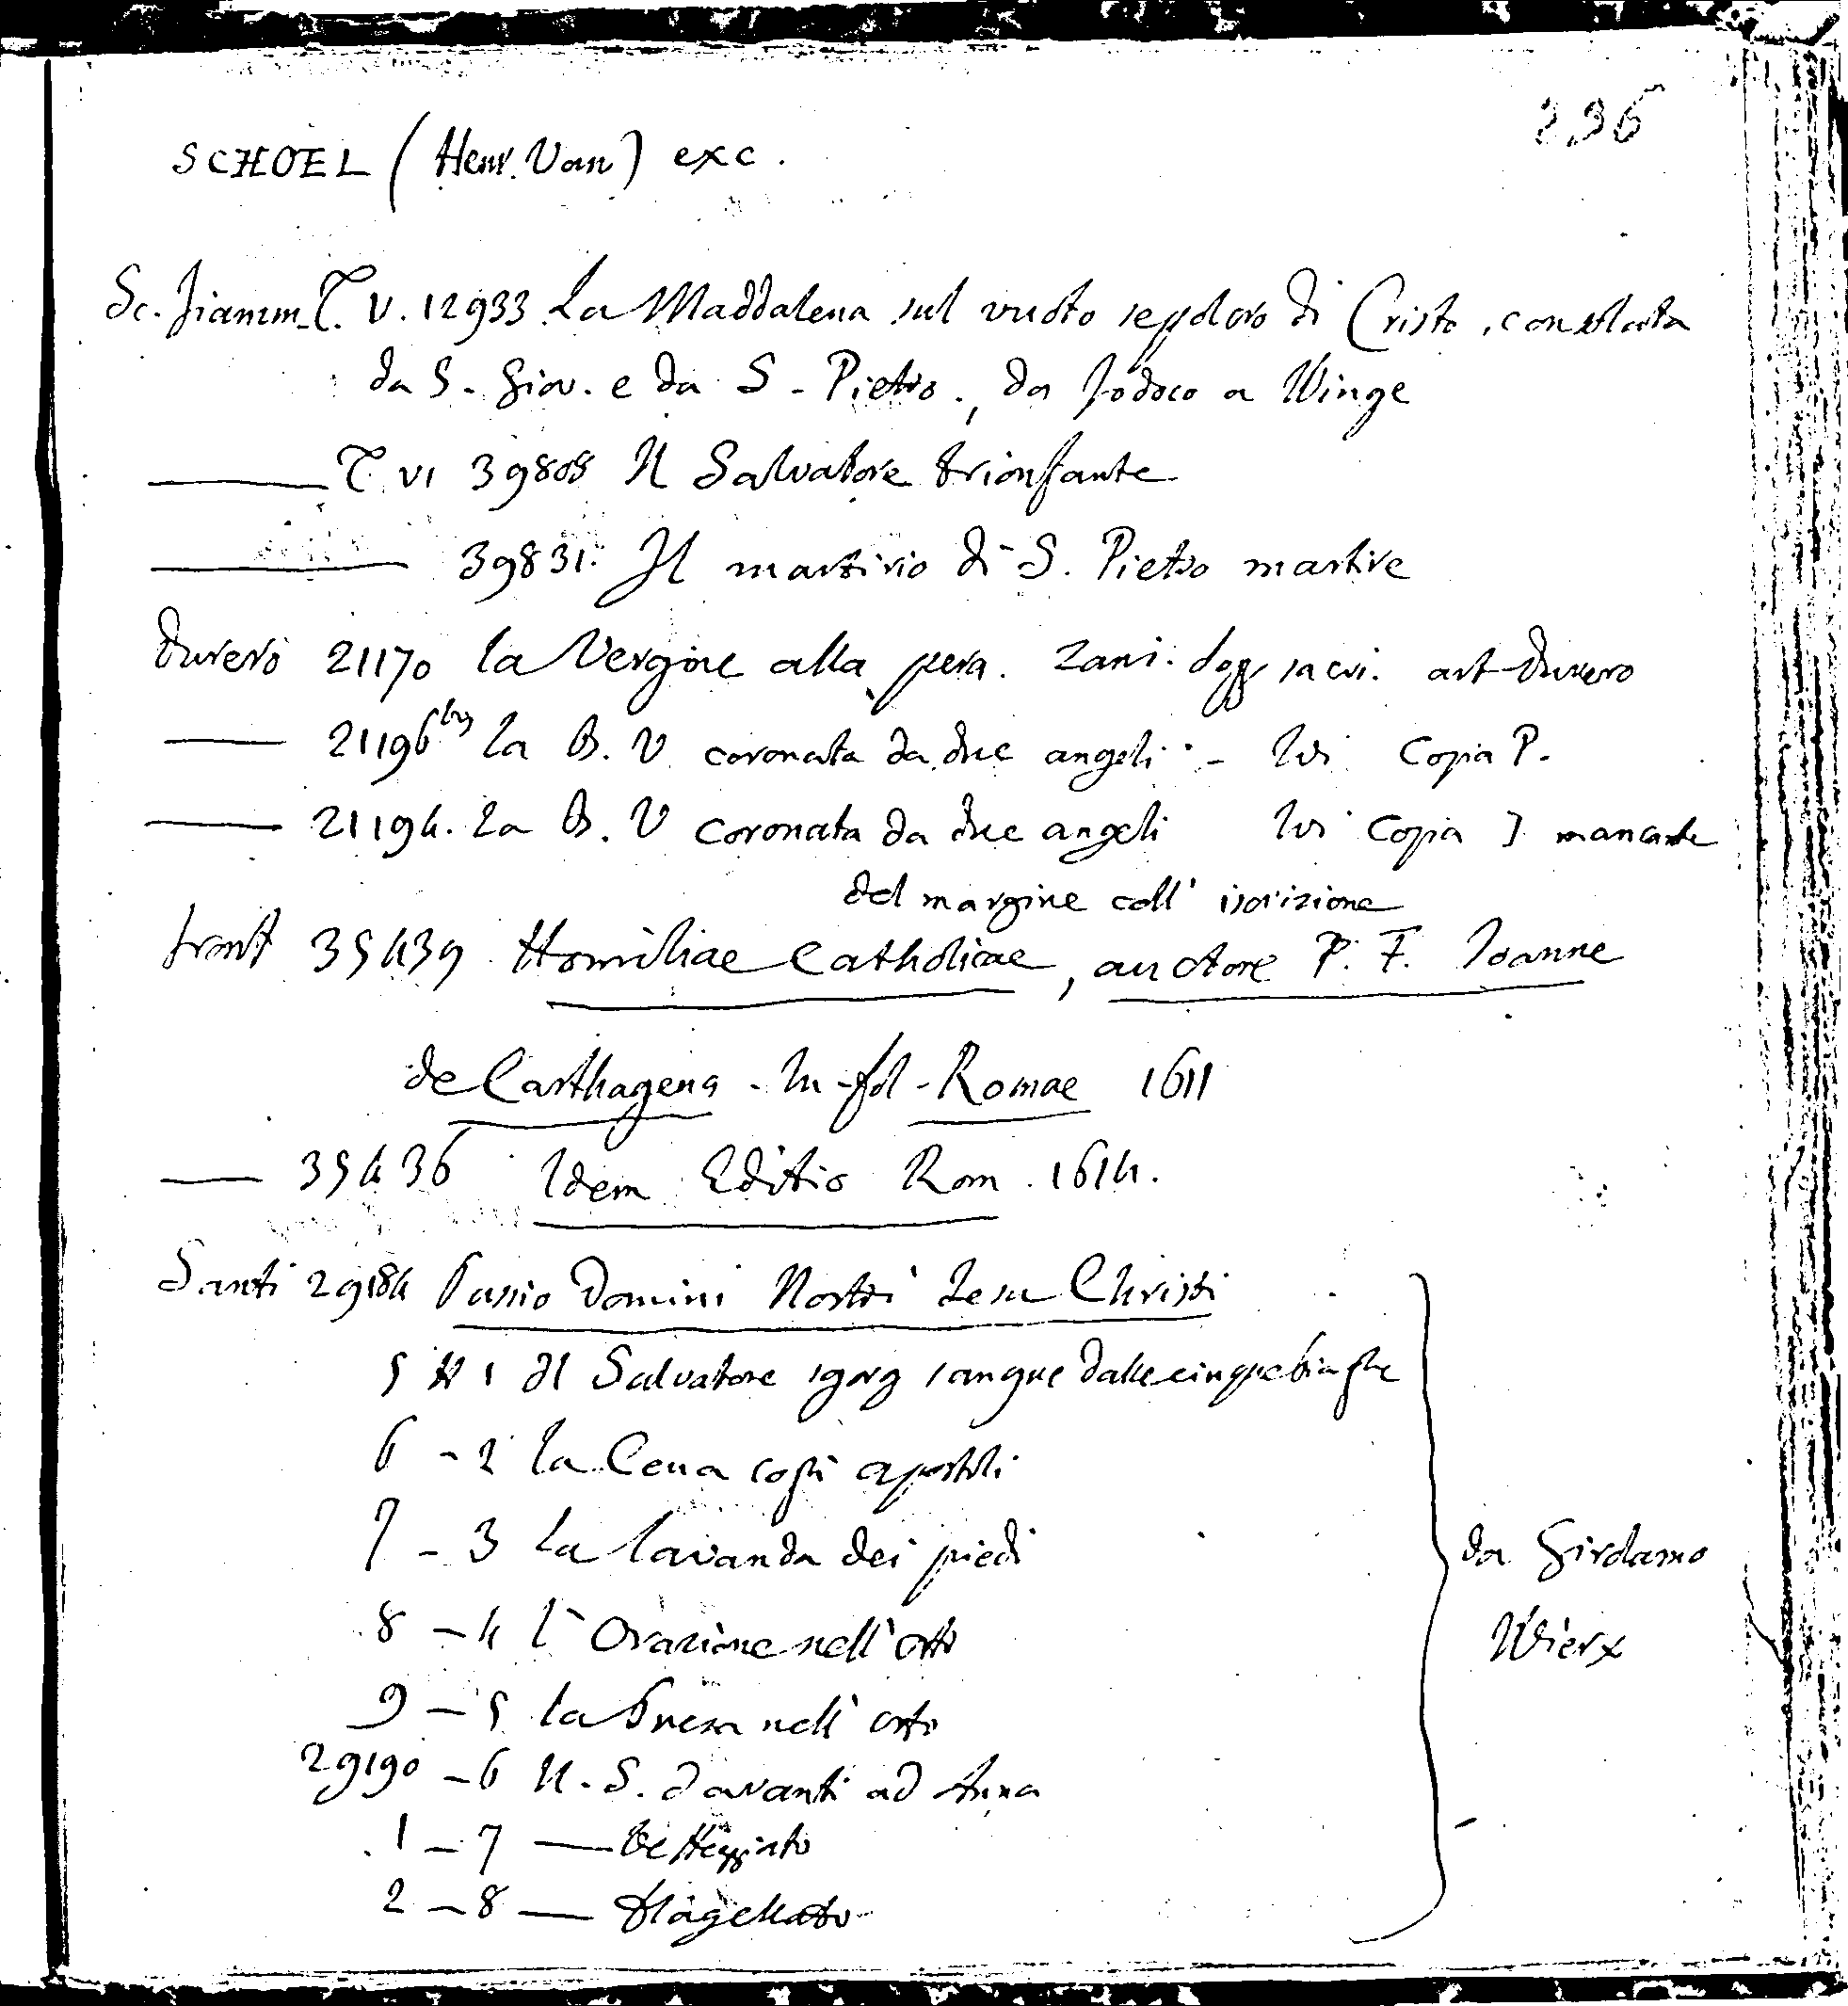 236
SCHOEL (Henr. Van) exc.
Sc. fiamm. T. V. 12933 La Maddalena sul vuoto sepolcro di Cristo, consolata
da S. Giov. e da S. Pietro, da Jodoco a Winge
——— T. VI 39808 Il Salvatore trionfante
——— 39831. Il martirio di S. Pietro martire
Durero 21170 la Vergine alla pera. Zani. sacri. art Durero
— 21196 bis la B. V coronata da due angeli - Ivi Copia P.
— 21194. La B. V coronata da due angeli Ivi Copia mancante
del margine coll' iscrizione
front 35439 Homiliae Catholicae, auctore P. F. Joanne
de Carthagena - In-fol - Romae 1611
— 35436 Idem Editio Rom. 1614.
Santi 29184 Passio Domini Nostri Jesu Christi
5 N 1 Il Salvatore sangue dalle cinque piaghe
6 - 2 la Cena cogli apostoli
7 - 3 La lavanda dei piedi
8 - 4 l'Orazione nell'orto
9 - 5 la Presa nell'orto
29190 - 6 N. S. davanti ad Anna
1 - 7 — beffeggiato
2 - 8 — flagellato
da Girolamo
Wierx